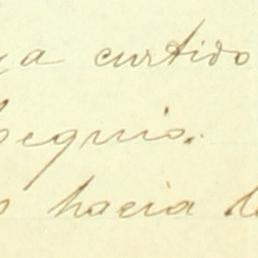 ya curtido
sequio.
o hacia l